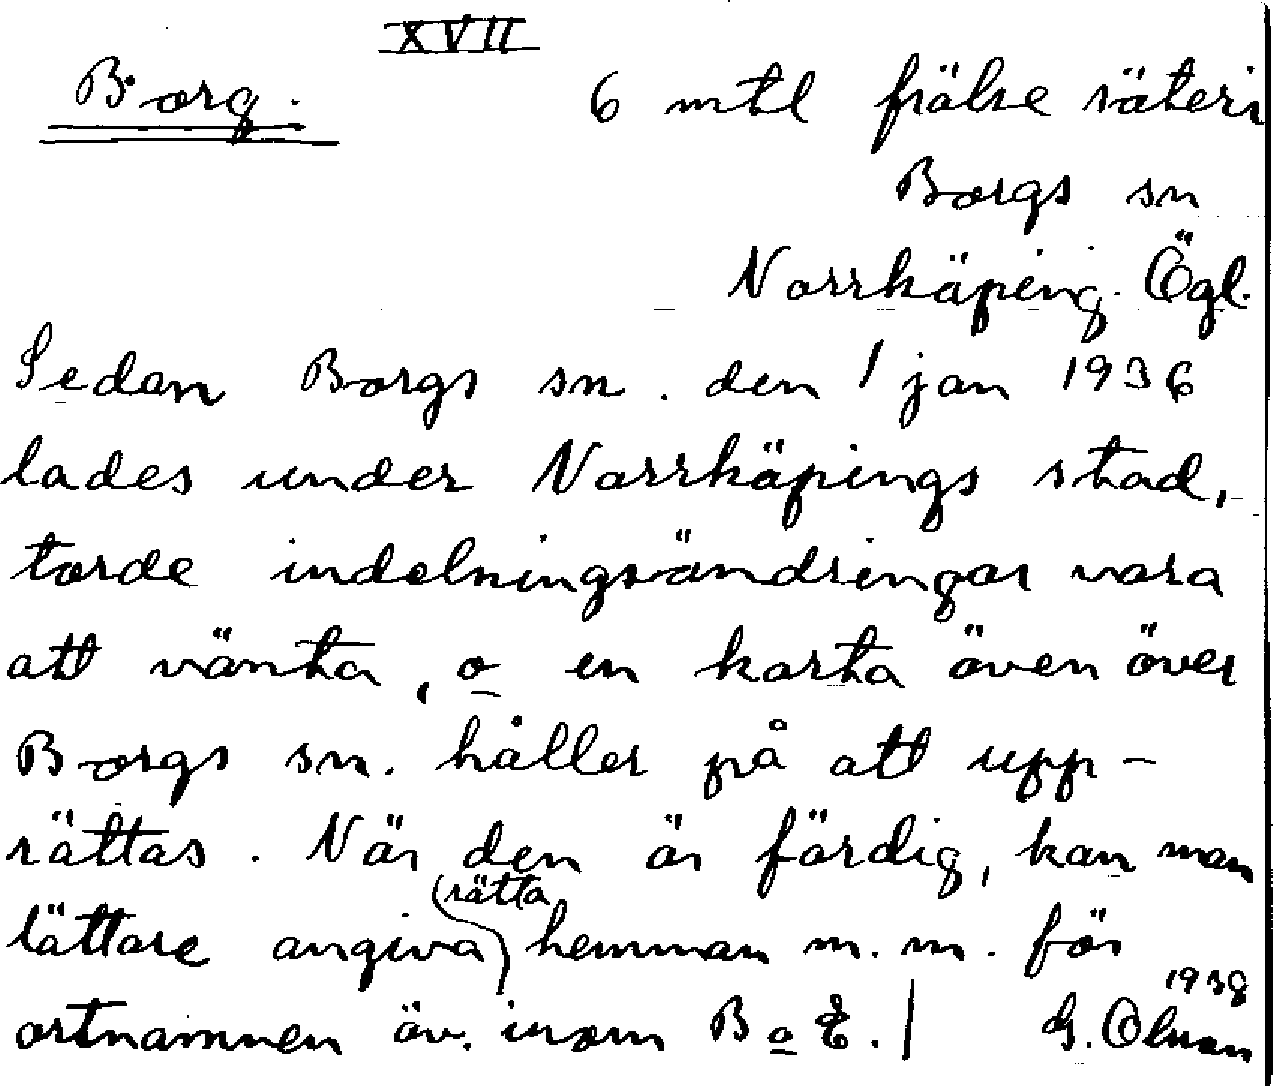 XVII
Borg. 6 mtl frälse säteri
Borgs sn
Norrköping. Ögl.
Sedan Borgs sn. den 1 jan 1936
lades under Norrköpings stad,
torde indelningsändringar vara
att vänta, o en karta även över
Borgs sn. håller på att upp-
rättas. När den är färdig, kan man
rätta
lättare angiva hemman m. m. för
1938
ortnamnen äv. inom B o L. G.